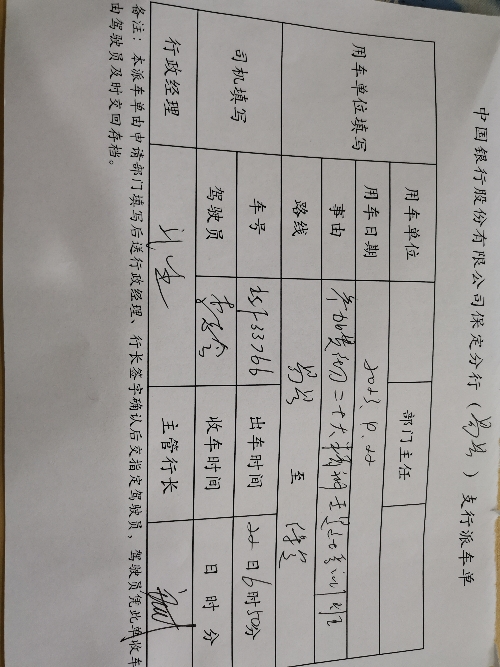 中国银行股份有限公司保定分行（易县）支行派车单
用车单位填写
用车单位
部门主任
用车日期 2023.4.22
事由 参加贯彻二十大精神
路线 易县 至
司机填写
车号 33766 出车时间 22日6时50分
驾驶员 收车时间 日 时 分
行政经理 主管行长
备注：本派车单由申请部门填写后送行政经理、行长签字确认后交指定驾驶员，驾驶员凭此单收车
由驾驶员及时交回存档。